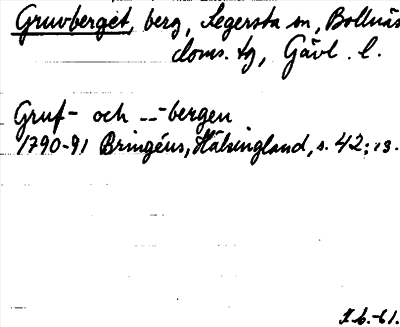 Gruvberget, berg, Segersta sn, Bollnäs
doms. tg, Gävl. l.
Gruf- och --bergen
1790-91 Bringéus, Hälsingland, s. 42;